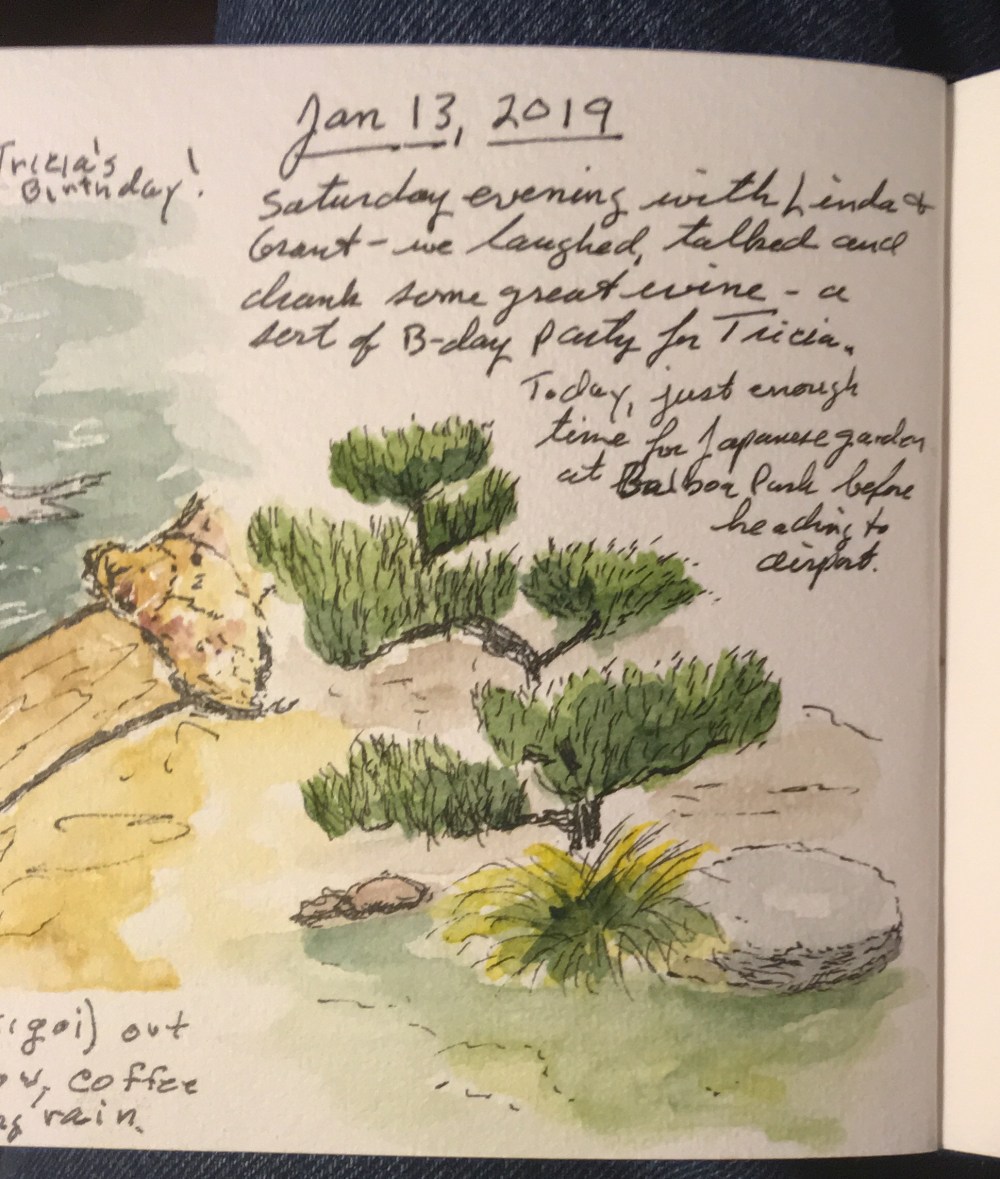 Tricia's
Birthday!
Jan 13, 2019
Saturday evening with Linda &
Grant - we laughed, talked and
drank some great wine - a
sort of B-day Party for Tricia.
Today, just enough
time for Japanese garden
at Balboa Park before
heading to
airport.
goi) out
coffee
rain.